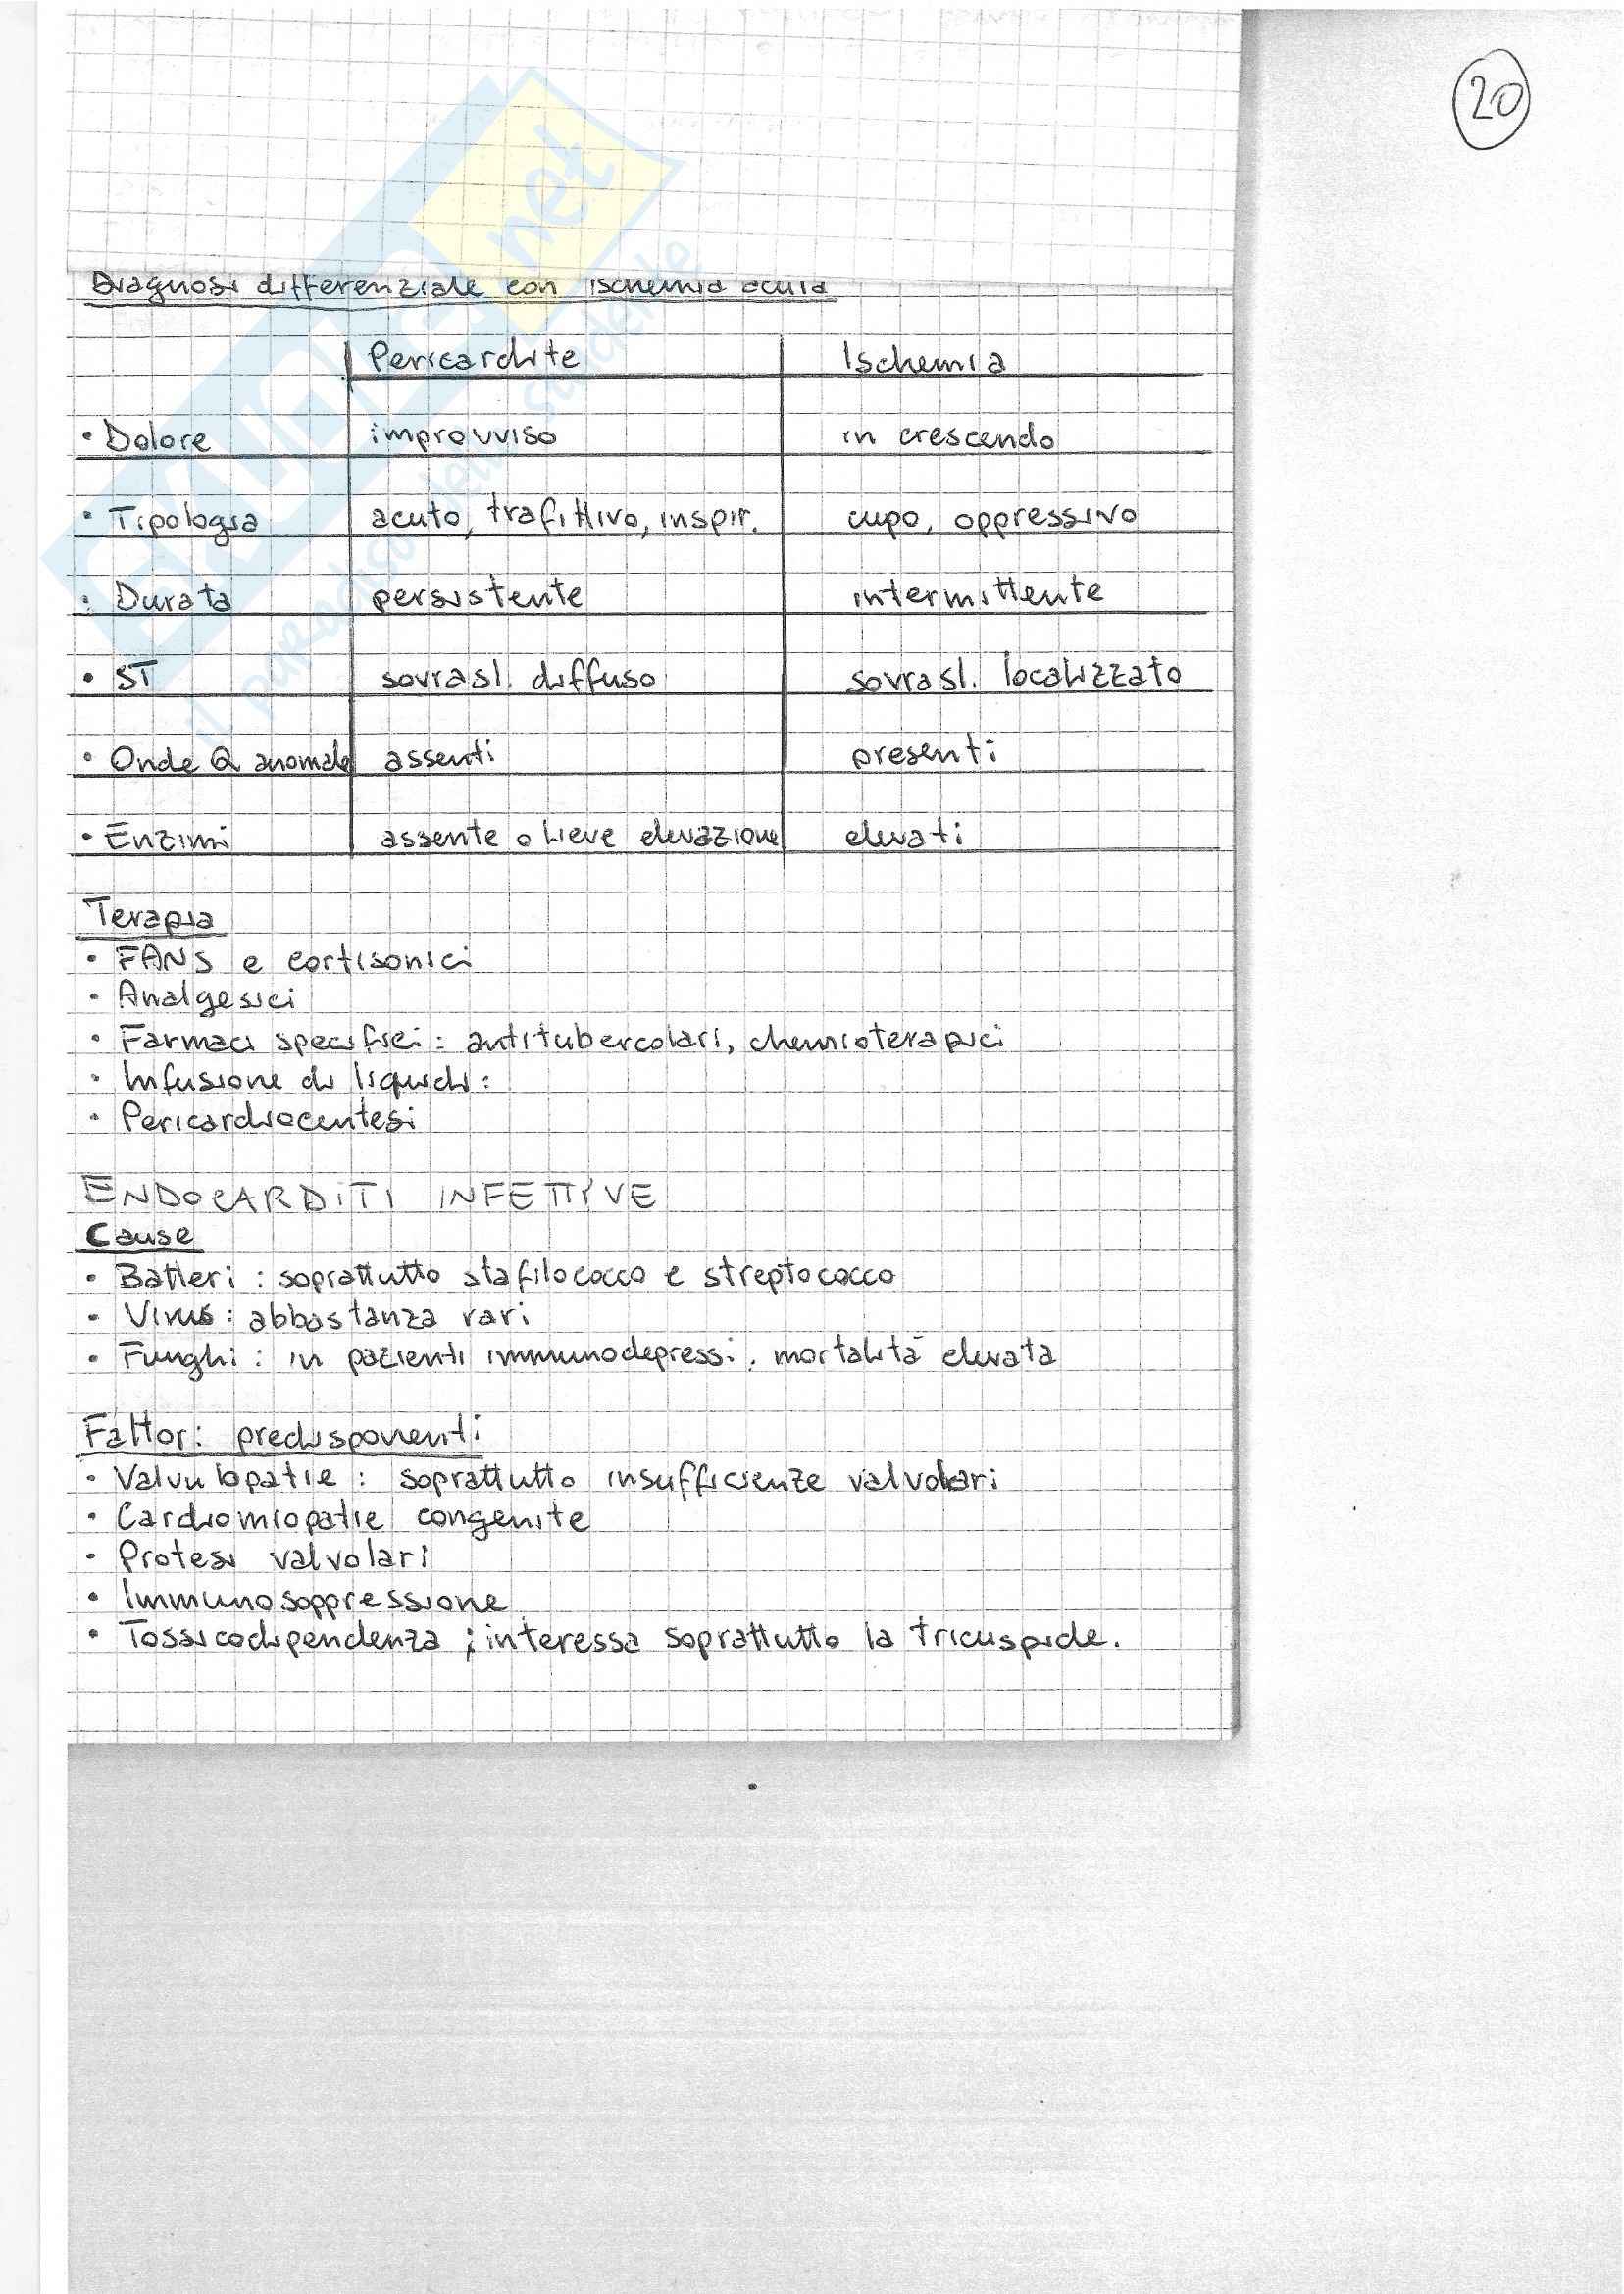 20
Diagnosi differenziale con ischemia acuta
Pericardite Ischemia
• Dolore improvviso in crescendo
• Tipologia acuto, trafittivo, inspir. cupo, oppressivo
• Durata persistente intermittente
• ST sovrasl. diffuso sovrasl. localizzato
• Onde Q anomale assenti presenti
• Enzimi assente o lieve elevazione elevati
Terapia
• FANS e cortisonici
• Analgesici
• Farmaci specifici: antitubercolari, chemioterapici
• Infusione di liquidi:
• Pericardiocentesi
ENDOCARDITI INFETTIVE
Cause
• Batteri: soprattutto stafilococco e streptococco
• Virus: abbastanza rari
• Funghi: in pazienti immunodepressi, mortalità elevata
Fattori predisponenti
• Valvulopatie: soprattutto insufficienze valvolari
• Cardiomiopatie congenite
• Protesi valvolari
• Immunosoppressione
• Tossicodipendenza; interessa soprattutto la tricuspide.
.net
il paradiso dello studente